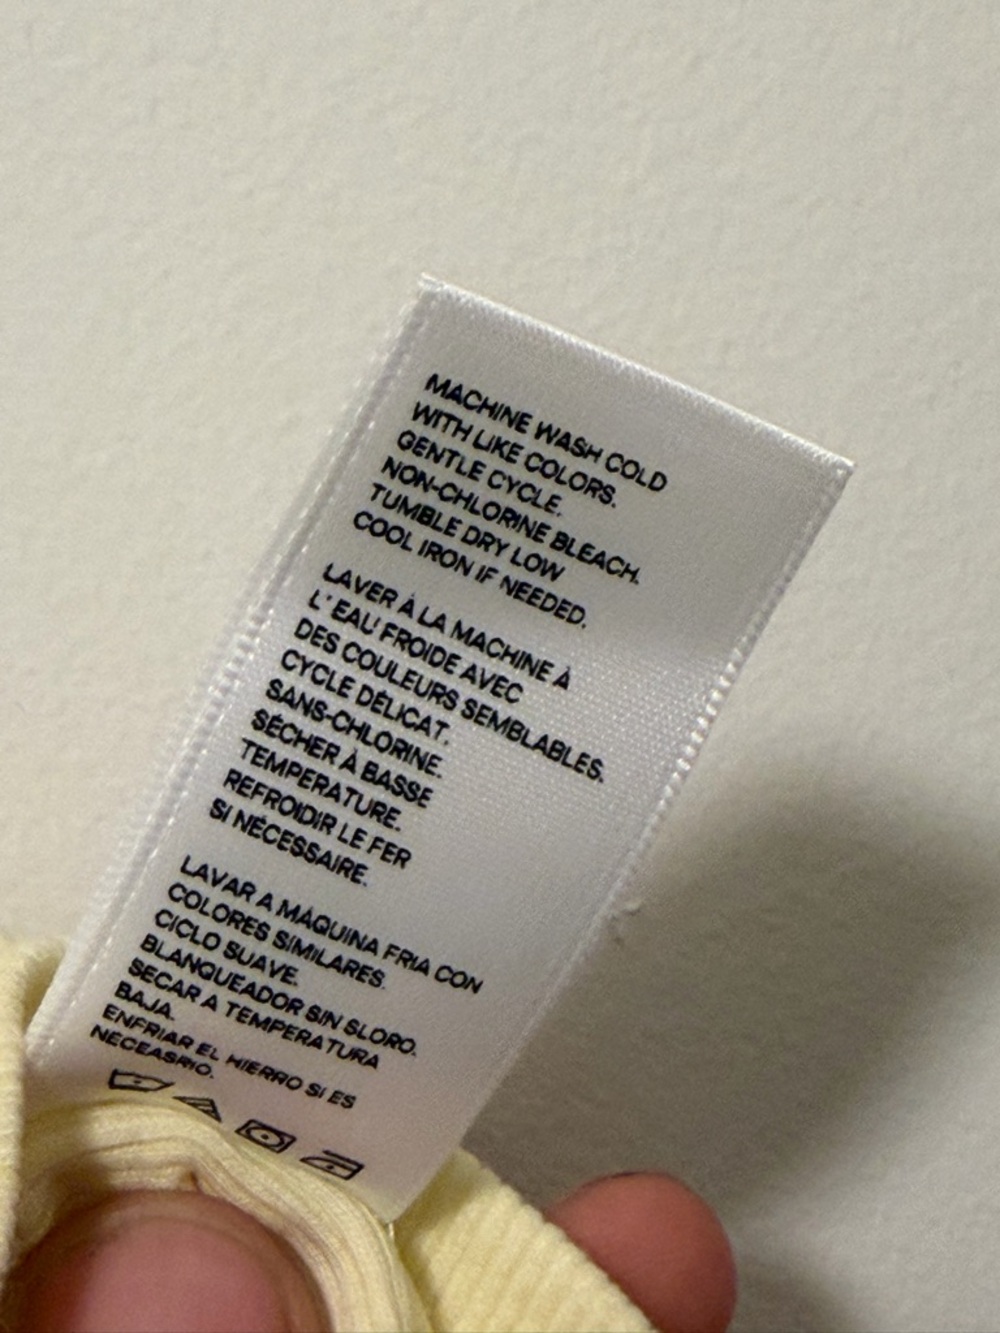 MACHINE WASH COLD
WITH LIKE COLORS.
GENTLE CYCLE.
NON-CHLORINE BLEACH.
TUMBLE DRY LOW
COOL IRON IF NEEDED.
LAVER À LA MACHINE À
L'EAU FROIDE AVEC
DES COULEURS SEMBLABLES.
CYCLE DÉLICAT.
SANS-CHLORINE.
SÉCHER À BASSE
TEMPERATURE.
REFROIDIR LE FER
SI NÉCESSAIRE.
LAVAR A MÁQUINA FRIA CON
COLORES SIMILARES.
CICLO SUAVE.
BLANQUEADOR SIN SLORO.
SECAR A TEMPERATURA
BAJA.
ENFRIAR EL HIERRO SI ES
NECEASRIO.